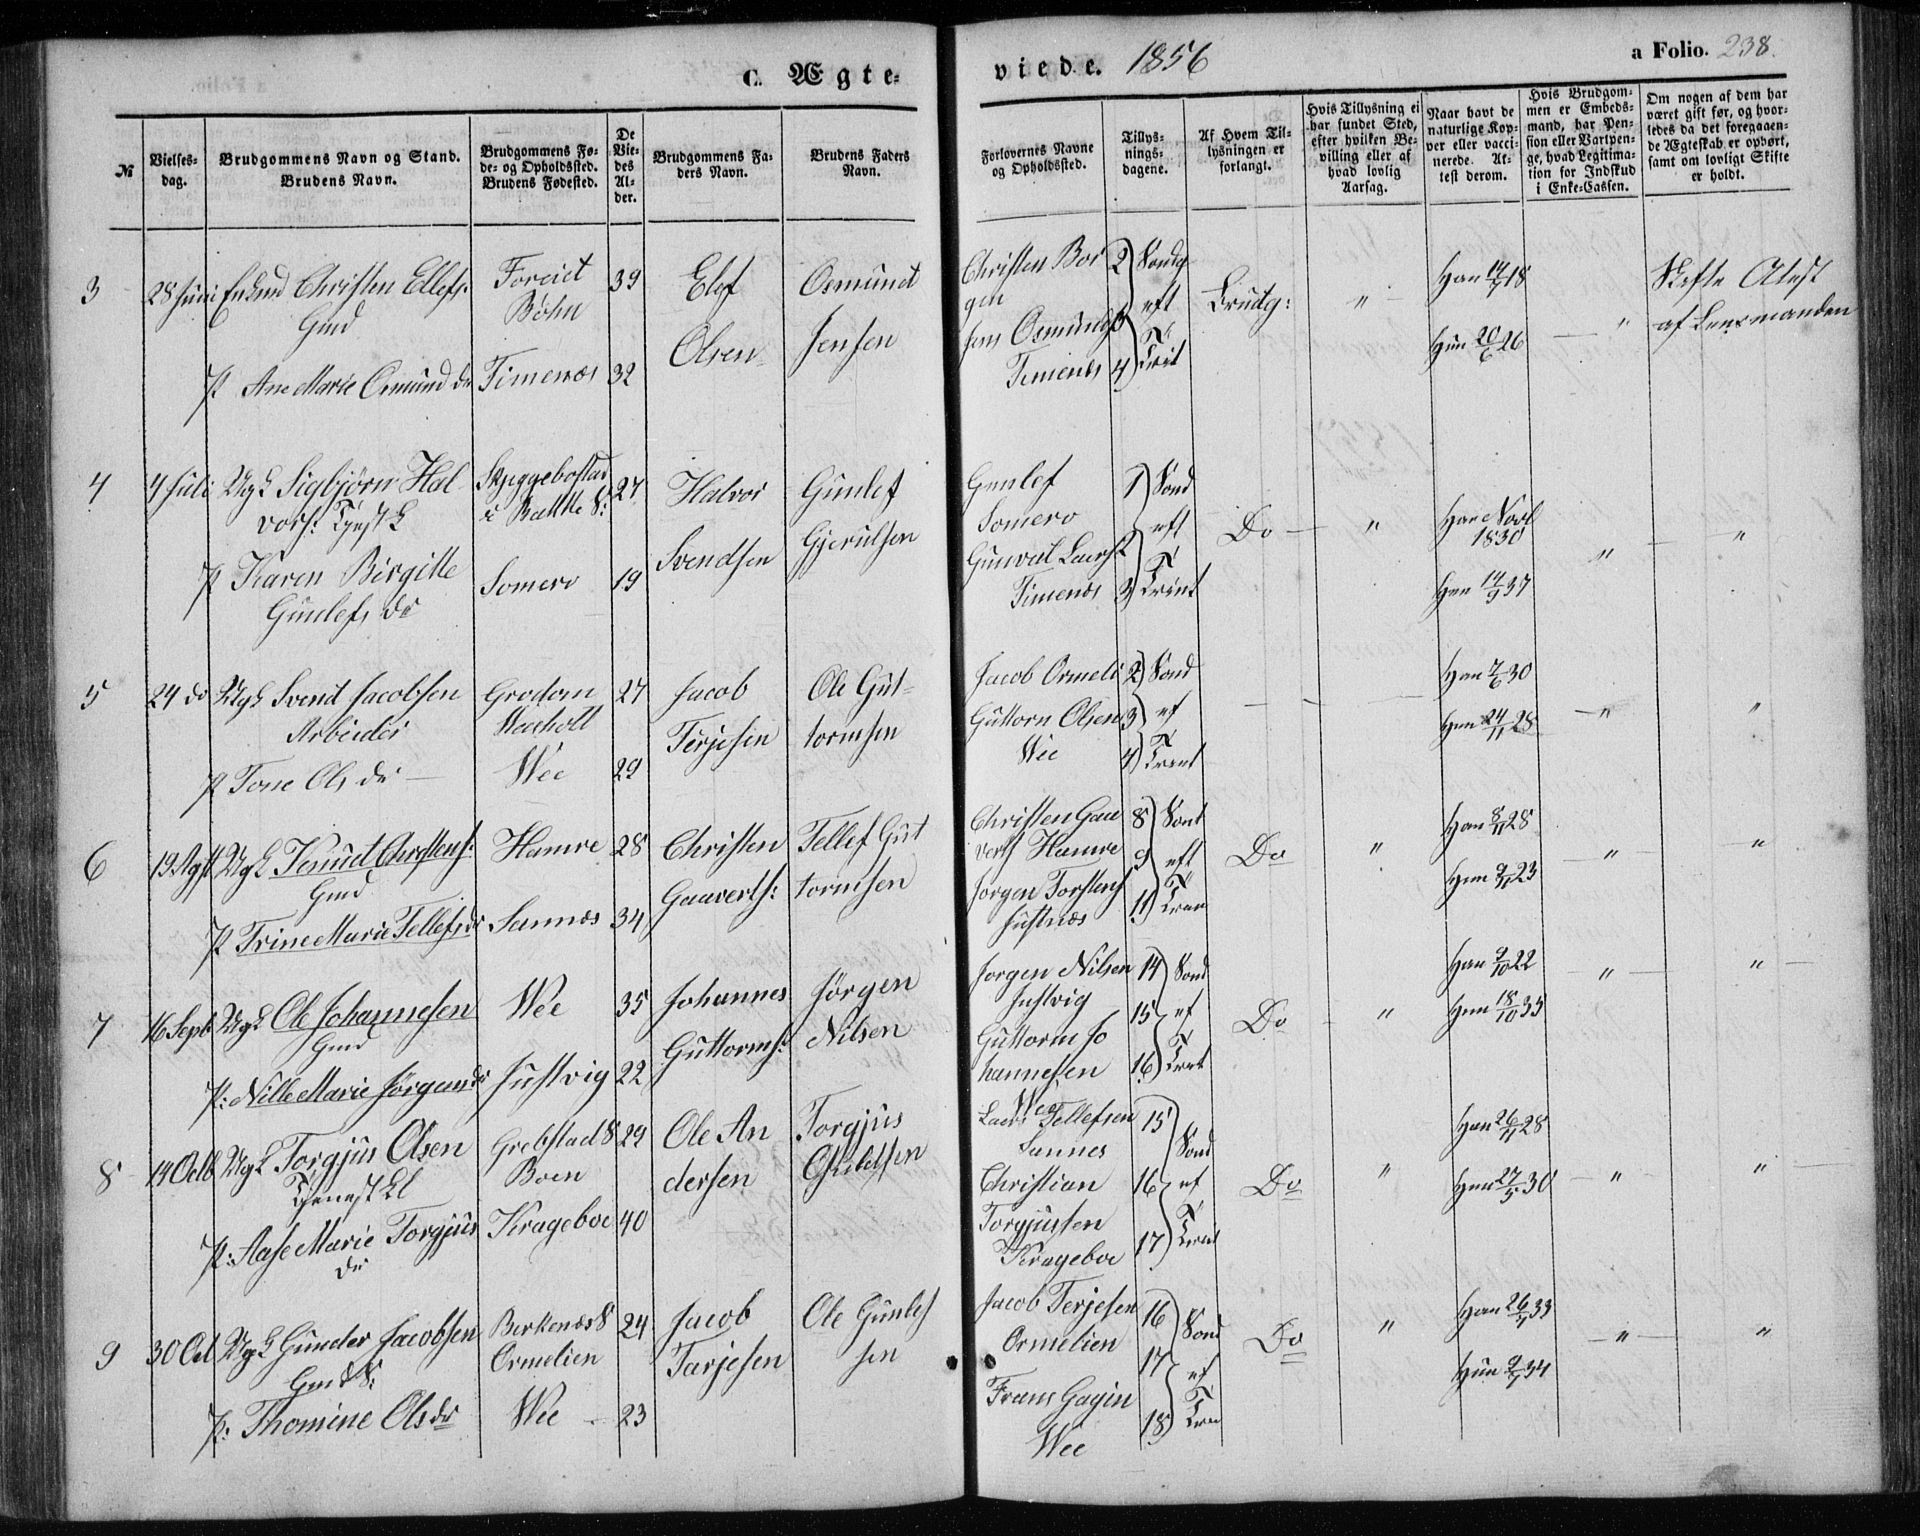 C. Ægte-
viede. 1856
a Folio. 238.
№
Vielses-
dag.
Brudgommens Navn og Stand.
Brudens Navn.
Brudgommens Fø-
de- og Opholdssted.
Brudens Fødested.
De
Vie-
des
Al-
der.
Brudgommens Fa-
ders Navn.
Brudens Faders
Navn.
Forlovernes Navne
og Opholdssted.
Tillys-
nings-
dagene.
Af Hvem Til-
lysningen er
forlangt.
Hvis Tillysning ei
har fundet Sted,
efter hvilken Be-
villing eller af
hvad lovlig
Aarsag.
Naar havt de
naturlige Kop-
per eller vacci-
nerede. At-
test derom.
Hvis Brudgom-
men er Embeds-
mand, har Pen-
sion eller Vartpen-
ge, hvad Legitima-
tion for Indskud
i Enke-Cassen.
Om nogen af dem har
været gift før, og hvor-
ledes da det foregaaen-
de Ægteskab er ophørt,
samt om lovligt Skifte
er holdt.
3 28 Juni Enkmd Christen Ellefs:
Gmd
P Ane Marie Osmund dr
Foreiet
Bøhn
Timenæs
39
32
Elef
Olsen
Osmund
Jensen
Christen Bor
gen
Jens Osmunds
Timenes
2
3
4
Søndg
eft
Tr
Trint
Brudg:
"
Han 14/7 18
Hun 20/6 26
"
Skifte Atest
af Lensmanden
4 4 Juli UgL Sigbjørn Hal
vors: Tjenst L
P Karen Birgitte
Gunlefs dr
Skjeggebostad
i Bakke S:
Somero
27
19
Halvor
Svendsen
Gunlef
Gjerulsen
Gunlef
Somero
Gunval Laars
Timenes
1
2
3
Sønd
eft
Tr
Trint
Do
"
Han Novl
1830
Hun 14/9 37
"
"
5 24 do UgL Svend Jacobsen
Arbeider
P Tone Ols dr
Grodom
Wee
27
29
Jacob
Terjesen
Ole Gut-
tormsen
Jacob Ormeli
Guttorn Olsen
Wee
2
3
4
Sønd
ef
Tr
Trint
Han 7/6 30
Hun 24/11 28
"
"
6 19 Agst UgL Knud Christens:
Gmd
P Trine Marie Tellefsdr
Hamre
Sannæs
28
34
Christen
Gauverts:
Tellef Gut
tormsen
Christen Gau
verts Hamre
Jørgen Torstens
Justnæs
8
9
11
Sønt
eft
Tr
Do
"
Han 8/11 28
Hun 9/11 23
"
"
7 16 Septb UgL Ole Johannesen
Gmd
P: Nille Marie Jørgendr
Wee
Justvig
35
22
Johannes
Guttorms:
Jørgen
Nilsen
Jorgen Nilsen
Justvig
Guttorm Jo
hannesen
Wee
14
15
16
Sønd
ef
Tr
Do
"
Han 9/10 22
Hun 18/10 35
"
"
8 14 Octb UgL Torgjus Olsen
Tjenest Kl
P: Aase Marie Torgjus
dr
Grebstad S
Boen
Krageboe
29
40
Ole An
dersen
Torgjus
Laers Tellefsen
Sannes
Christian
Torgjussen
Krageboe
15
16
17
Sønd
ef
Tr
Trint
Do
"
Han 26/11 28
Hun 27/5 30
"
"
9 30 Oct UgL Gunder Jacobsen
Gmd S:
P: Thomine Olsdr
Berkenæs S
Ormelien
Wee
24
23
Jacob
Tarjesen
Ole Gunlef
sen
Jacob Terjesen
Ormelien
Frans Gagin
Wee
16
17
18
Sønd
ef
Tr
Do
"
Han 26/11 33
Hun 9/7 34
"
"